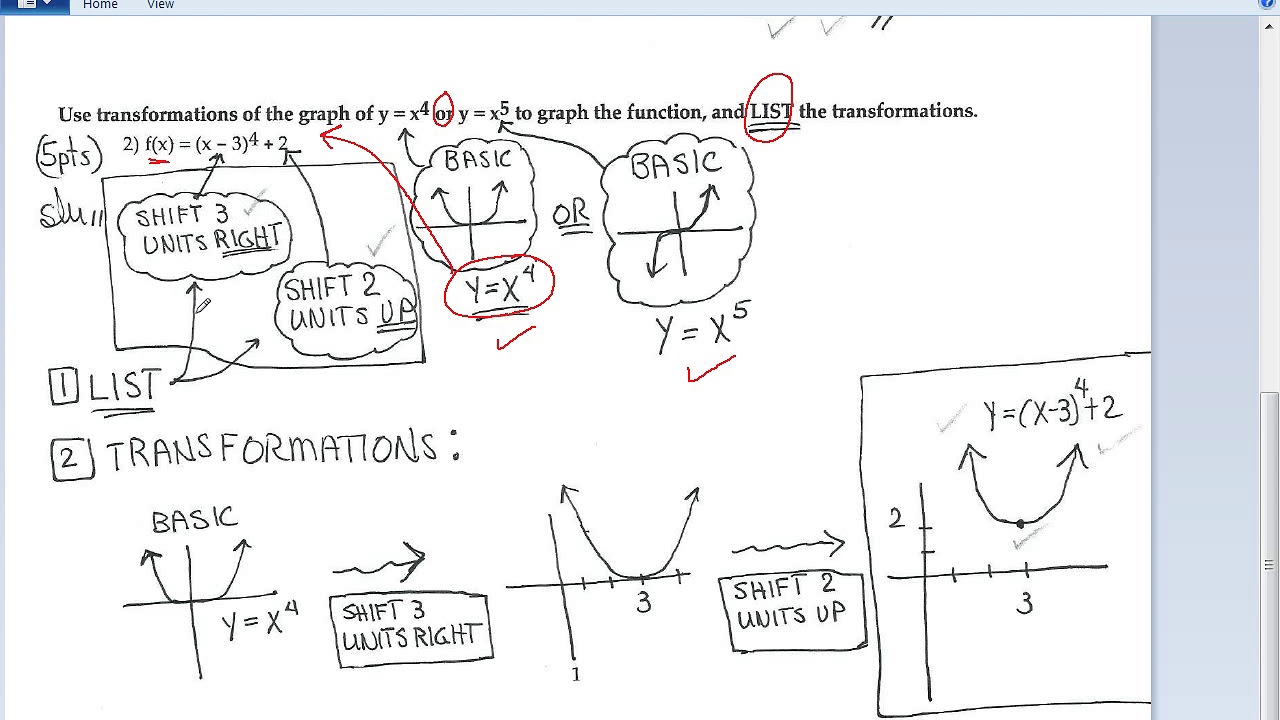 Home View
Use transformations of the graph of y = x⁴ or y = x⁵ to graph the function, and LIST the transformations.
(5pts) 2) f(x) = (x – 3)⁴ + 2
BASIC
BASIC
SHIFT 3
UNITS RIGHT
OR
SHIFT 2
UNITS UP
Y = X⁴
Y = X⁵
1 LIST
2 TRANSFORMATIONS:
Y=(X-3)⁴+2
BASIC
Y = X⁴
SHIFT 3
UNITS RIGHT
3
SHIFT 2
UNITS UP
2
3
1